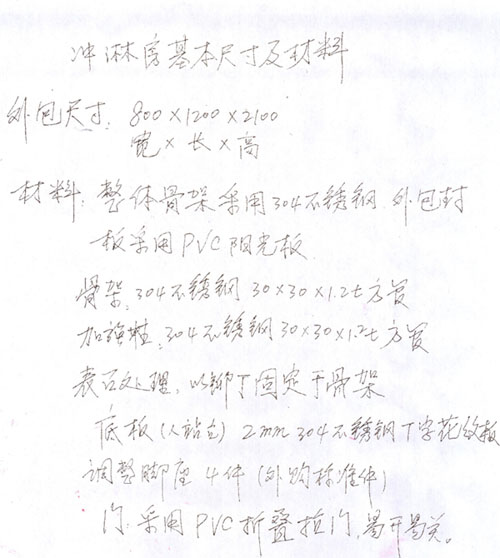 冲淋房基本尺寸及材料
外包尺寸: 800×1200×2100
宽×长×高
材料: 整体骨架采用304不锈钢 外包封
板采用PVC阳光板
骨架, 304不锈钢 30×30×1.2t方管
加强柱, 304不锈钢30×30×1.2t方管
表面处理, 以铆丁固定于骨架
底板(人站立) 2mm 304不锈钢丁字花纹板
调整脚座 4件 (外购标准件)
门 采用PVC折叠拉门, 易开易关.